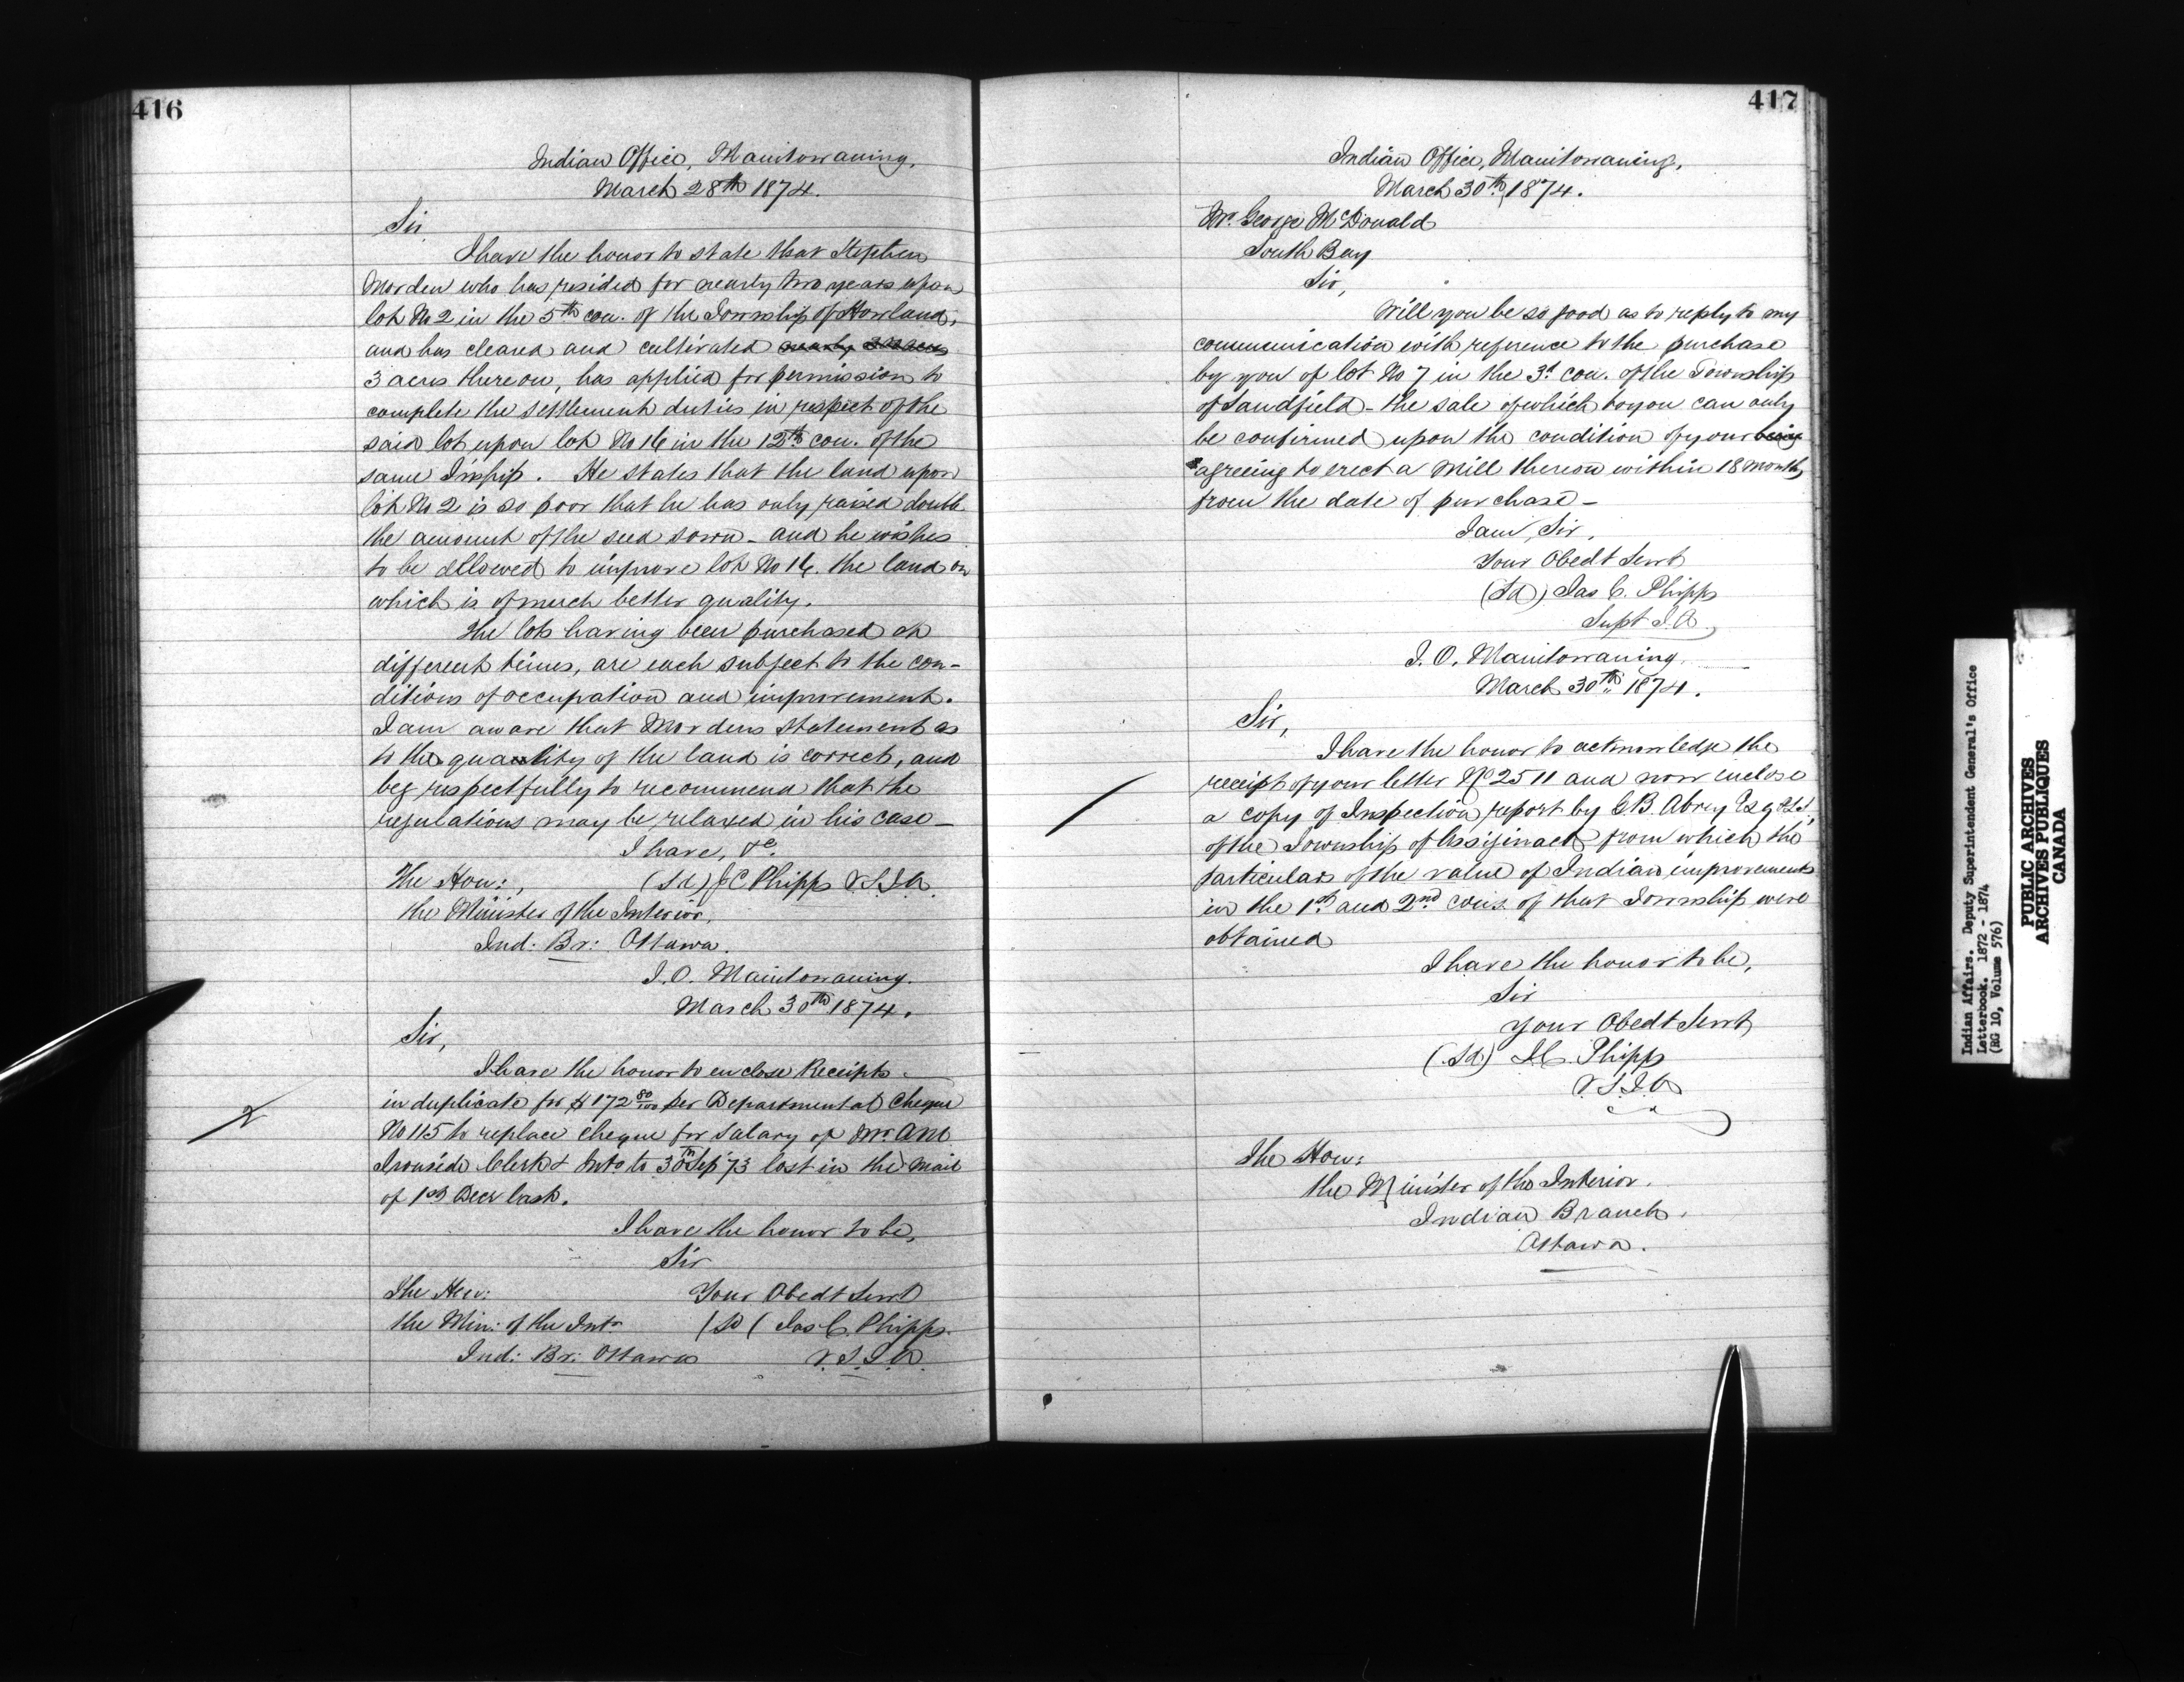 416
Indian Office, Manitowaning,
March 28th 1874.
Sir
I have the honor to state that Stephen
Morden who has resided for nearly two years upon
lot No 2 in the 5th con. of the Township of Howland,
and has cleared and cultivated nearly
3 acres thereon, has applied for permission to
complete the settlement duties in respect of the
said lot upon lot No 16 in the 12th con. of the
same Tnship. He states that the land upon
lot No 2 is so poor that he has only raised double
the amount of the seed sown - and he wishes
to be allowed to improve lot No 16. the land on
which is of much better quality.
The lots having been purchased at
different times, are each subject to the con-
ditions of occupation and improvement.
I am aware that Mordens statement as
to the quality of the land is correct, and
beg respectfully to recommend that the
regulations may be relaxed in his case -
I have, &c.
The Hon:, (Sd) J C Phipps V.S.I.A.
the Minister of the Interior,
Ind: Br: Ottawa.
I.O. Manitowaning.
March 30th 1874.
Sir,
I have the honor to enclose Receipts
in duplicate for $172 80/100 per Departmental Cheque
No 115 to replace cheque for Salary of Mr. AM
Ironside Clerk & Intr to 30th Sep '73 lost in the mail
of 1st Decr last.
I have the honor to be,
Sir
The Hon: Your Obedt Servt
the Min: of the Intr (Sd ( Jas C. Phipps.
Ind: Br: Ottawa V.S.I.A.
417
Indian Office, Manitowaning,
March 30th, 1874.
Mr. George McDonald
South Bay
Sir,
Will you be so good as to reply to my
communication with reference to the purchase
by you of lot No 7 in the 3d con. of the Township
of Sandfield - the sale of which to you can only
be confirmed upon the condition of your being
agreeing to erect a Mill thereon within 18 months
from the date of purchase -
I am, Sir,
Your Obedt Servt
(Sd) Jas C. Phipps
Supt I.A.
I.O. Manitowaning.
March 30th 1874.
Sir,
I have the honor to acknowledge the
receipt of your letter No 2511 and now enclose
a copy of Inspection report by G.B. Abrey Esq P.L.S.,
of the Township of Assiginack from which the
particulars of the value of Indian improvements
in the 1st and 2nd cons. of that Township were
obtained
I have the honor to be,
Sir
your Obedt Servt
(Sd) J.C. Phipps
V.S.I.A
The Hon:
the Minister of the Interior.
Indian Branch,
Ottawa.
Indian Affairs. Deputy Superintendent General's Office
Letterbook. 1872 - 1874
(RG 10, Volume 576)
PUBLIC ARCHIVES
ARCHIVES PUBLIQUES
CANADA